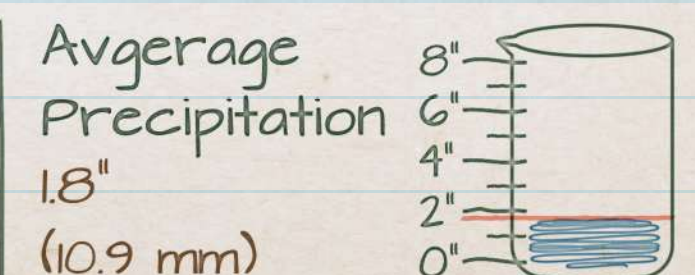 Avgerage
Precipitation
1.8"
(10.9 mm)
8"
6"
4"
2"
0"